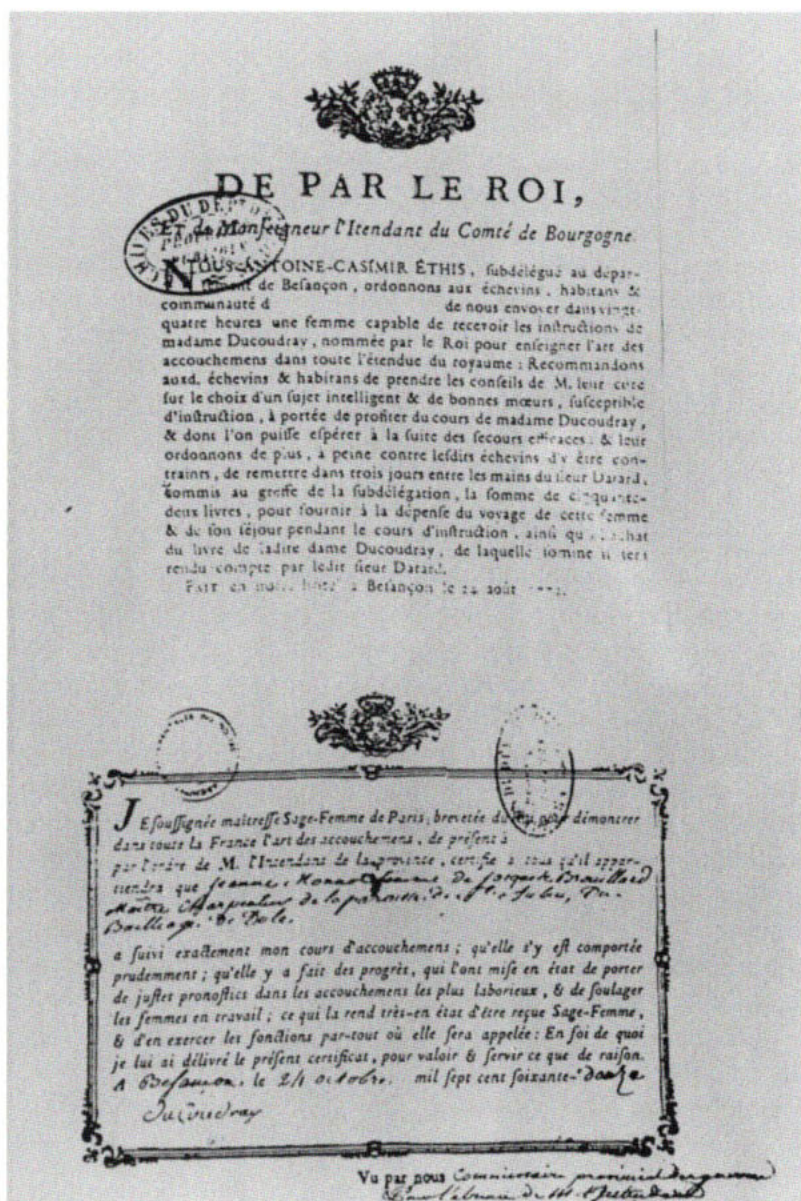 DE PAR LE ROI,
ET de Monseigneur l'Itendant du Comté de Bourgogne.
NOUS ANTOINE-CASIMIR ÉTHIS, subdélégué au dépar-
tement de Besançon, ordonnons aux échevins, habitans &
communauté d de nous envoyer dans vingt-
quatre heures une femme capable de recevoir les instructions de
madame Ducoudray, nommée par le Roi pour enseigner l'art des
accouchemens dans toute l'étendue du royaume : Recommandons
auxd. échevins & habitans de prendre les conseils de M. leur curé
sur le choix d'un sujet intelligent & de bonnes mœurs, susceptible
d'instruction, à portée de profiter du cours de madame Ducoudray,
& dont l'on puisse espérer à la suite des secours efficaces : & leur
ordonnons de plus, à peine contre lesdits échevins d'y être con-
traints, de remettre dans trois jours entre les mains du sieur Datard,
commis au greffe de la subdélégation, la somme de cinquante-
deux livres, pour fournir à la dépense du voyage de cette femme
& de son séjour pendant le cours d'instruction, ainsi qu'à l'achat
du livre de ladite dame Ducoudray, de laquelle somme il sera
rendu compte par ledit sieur Datard.
FAIT en notre hôtel à Besançon le 24 août
JE soussignée maîtresse Sage-Femme de Paris, brevetée du Roi pour démontrer
dans toute la France l'art des accouchemens, de présent à
par l'ordre de M. l'Intendant de la province, certifie à tous qu'il appar-
tiendra que Jeanne femme de Jacques Brouillard
Maître Charpentier de la paroisse de Du
Bailliage De Dole.
a suivi exactement mon cours d'accouchemens ; qu'elle s'y est comportée
prudemment ; qu'elle y a fait des progrès, qui l'ont mise en état de porter
de justes pronostics dans les accouchemens les plus laborieux, & de soulager
les femmes en travail ; ce qui la rend très-en état d'être reçue Sage-Femme,
& d'en exercer les fonctions par-tout où elle sera appelée : En foi de quoi
je lui ai délivré le présent certificat, pour valoir & servir ce que de raison.
A Besançon, le 24 octobre. mil sept cent soixante-douze
Du Coudray
Vu par nous Commissaire provincial des guerres